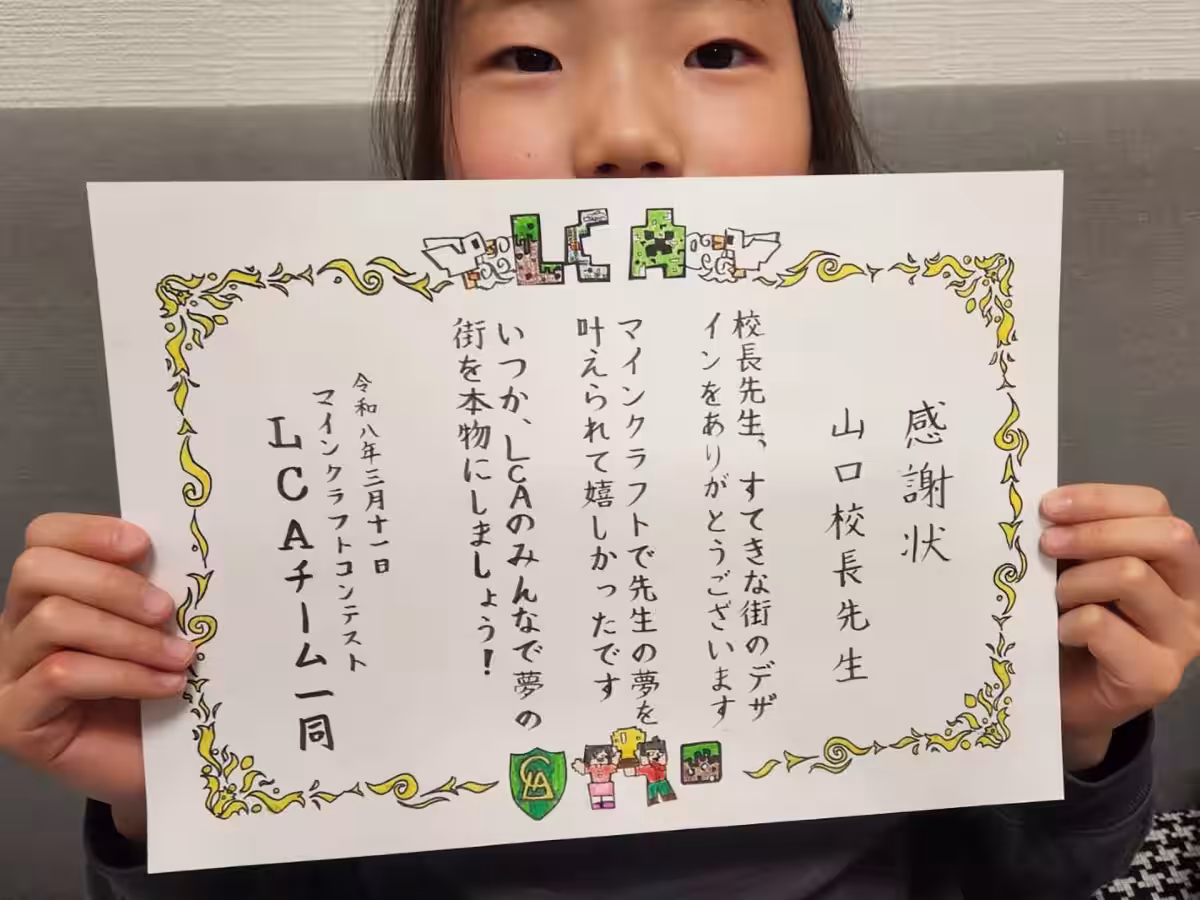 LCA
感謝状
山口校長先生
校長先生、すてきな街のデザ
インをありがとうございます
マインクラフトで先生の夢を
叶えられて嬉しかったです
いつか、LCAのみんなで夢の
街を本物にしましょう!
令和八年三月十一日
マインクラフトコンテスト
LCAチーム一同